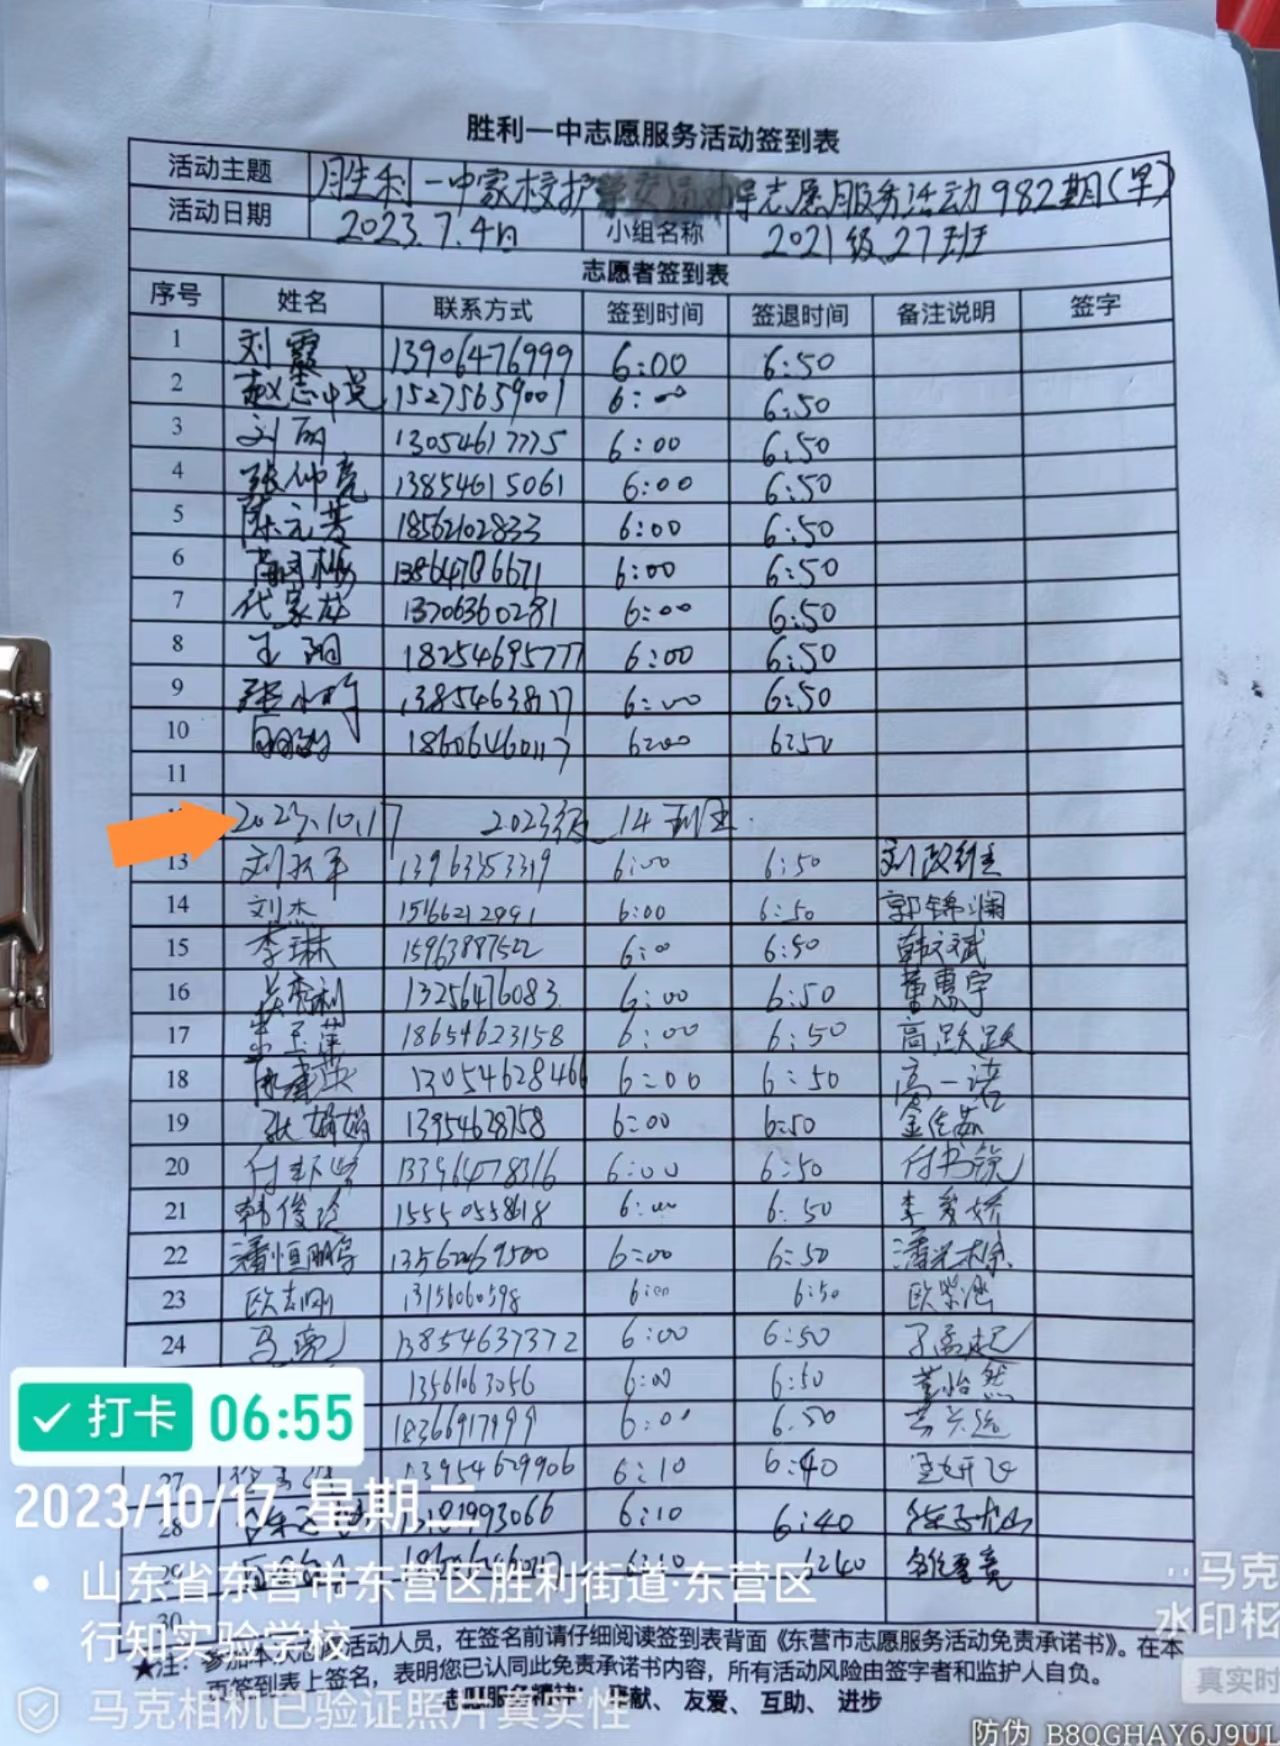 胜利一中志愿服务活动签到表
活动主题 胜利一中家校护学交通协导志愿服务活动982期(早)
活动日期 2023.7.4日 小组名称 2021级27班
志愿者签到表
序号 姓名 联系方式 签到时间 签退时间 备注说明 签字
1 刘霞 13906476999 6:00 6:50
2 15275659001 6:00 6:50
3 刘丽 13054617775 6:00 6:50
4 张仲亮 13854615061 6:00 6:50
5 陈元芳 18562102833 6:00 6:50
6 6:00 6:50
7 代家龙 13706360281 6:00 6:50
8 王阳 18254695777 6:00 6:50
9 6:00 6:50
10 18606460117 6:00 6:50
11
2023.10.17 2023级 14班
13 刘振军 13963353319 6:00 6:50 刘政维
14 刘杰 15166212991 6:00 6:50 郭锦澜
15 李琳 15963887522 6:00 6:50 韩文斌
16 13256476083 6:00 6:50 董惠宇
17 18654623158 6:00 6:50 高跃跃
18 13054628466 6:00 6:50 高一诺
19 张娟娟 13954628758 6:00 6:50
20 13396478316 6:00 6:50 付书锐
21 韩俊玲 15550558618 6:00 6:50 李爱娇
22 潘恒鹏 6:00 6:50
23 欧志刚 13156060598 6:00 6:50 欧紫涵
24 马亮 13854637372 6:00 6:50
6:00 6:50 董怡然
18366917999 6:00 6:50
27 13954629906 6:10 6:40
28 6:10 6:40
29 6:10 6:40
30
★注：参加本次志愿活动人员，在签名前请仔细阅读签到表背面《东营市志愿服务活动免责承诺书》。在本
页签到表上签名，表明您已认同此免责承诺书内容，所有活动风险由签字者和监护人自负。
志愿服务精神：奉献、友爱、互助、进步
打卡 06:55
2023/10/17 星期二
山东省东营市东营区胜利街道·东营区
行知实验学校
马克相机已验证照片真实性
马克
水印相
真实时
防伪 B8QGHAY6J9UL